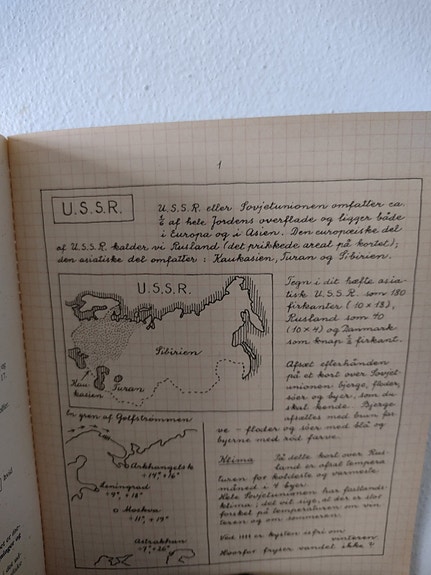 1
U.S.S.R.
U.S.S.R. eller Sovjetunionen omfatter ca.
1/6 af hele Jordens overflade og ligger både
i Europa og i Asien. Den europæiske del
af U.S.S.R. kalder vi Rusland (det prikkede areal på kortet);
den asiatiske del omfatter: Kaukasien, Turan og Sibirien.
U.S.S.R.
Sibirien
Kau
kasien
Turan
Tegn i dit hæfte asia-
tisk U.S.S.R. som 180
firkanter (10 × 18),
Rusland som 40
(10 × 4) og Danmark
som knap 1/2 firkant.
Afsæt efterhånden
på et kort over Sovjet-
unionen bjerge, floder,
søer og byer, som du
skal kende. Bjerge
afsættes med brun far-
ve - floder og søer med blå og
byerne med rød farve.
En gren af Golfstrømmen
Arkhangelsk
Leningrad
Moskva
Astrakhan
Klima På dette kort over Rus-
land er afsat tempera
turen for koldeste og varmeste
måned i 4 byer.
Hele Sovjetunionen har fastlands-
klima; det vil sige, at der er stor
forskel på temperaturen om vin
teren og om sommeren.
Ved er kysten isfri om
vinteren.
Hvorfor fryser vandet ikke